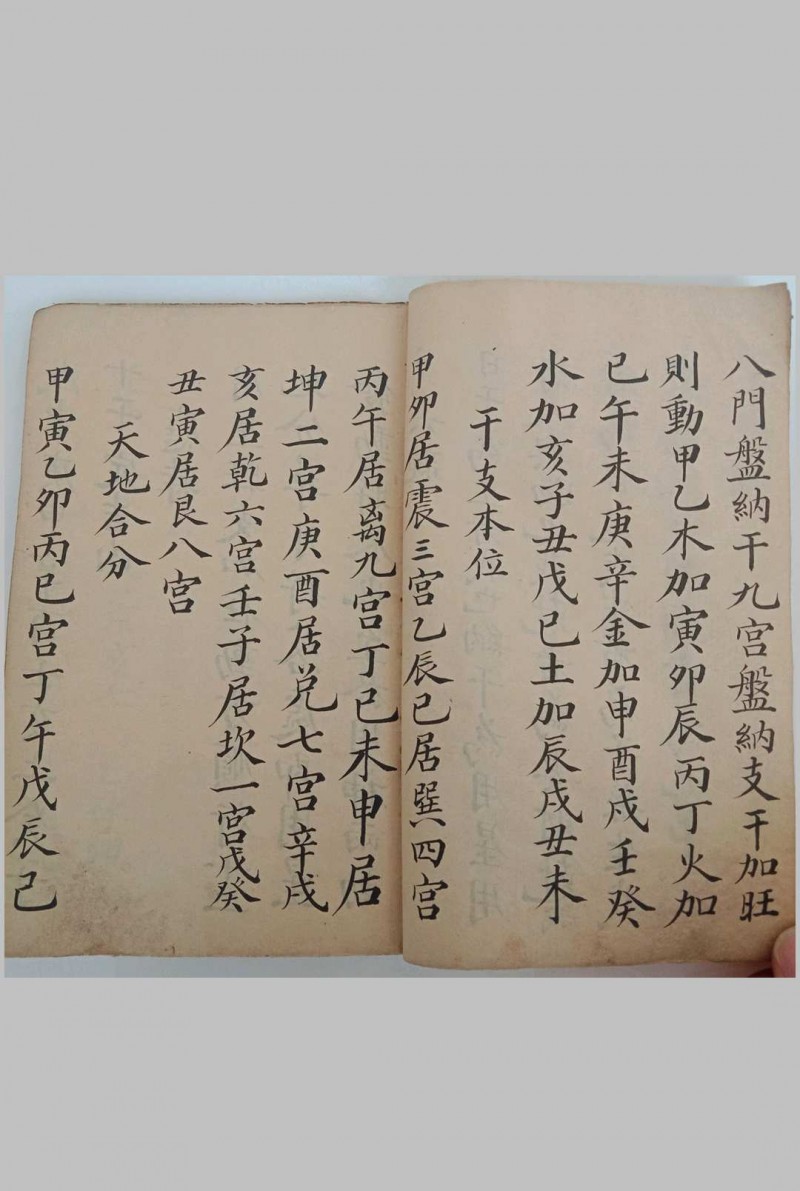 八門盤納干九宮盤納支干加旺
則動甲乙木加寅卯辰丙丁火加
巳午未庚辛金加申酉戌壬癸
水加亥子丑戊己土加辰戌丑未
干支本位
甲卯居震三宮乙辰巳居巽四宮
丙午居离九宮丁己未申居
坤二宮庚酉居兑七宮辛戌
亥居乾六宮壬子居坎一宮戊癸
丑寅居艮八宮
天地合分
甲寅乙卯丙巳宮丁午戊辰己